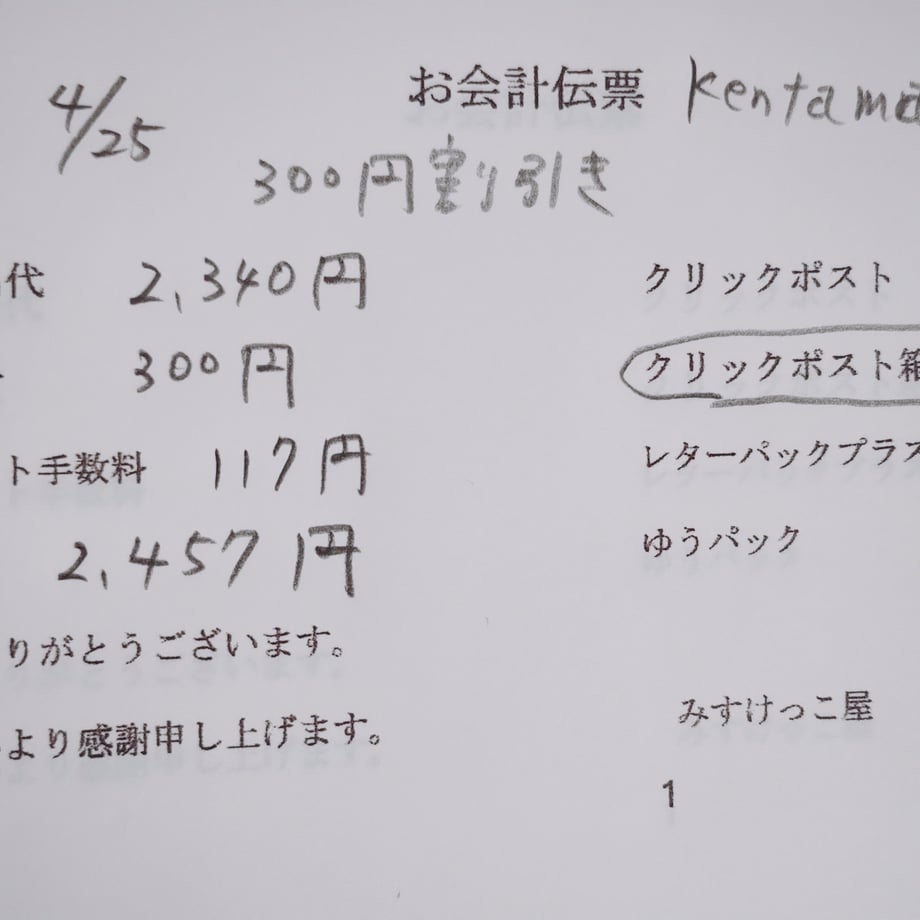 4/25
お会計伝票 Kentama
300円割り引き
代 2,340円
クリックポスト
300円
クリックポスト箱
ト手数料 117円
レタープラックプラス
2,457円
ゆうパック
りがとうございます。
より感謝申し上げます。
みすけっこ屋
1